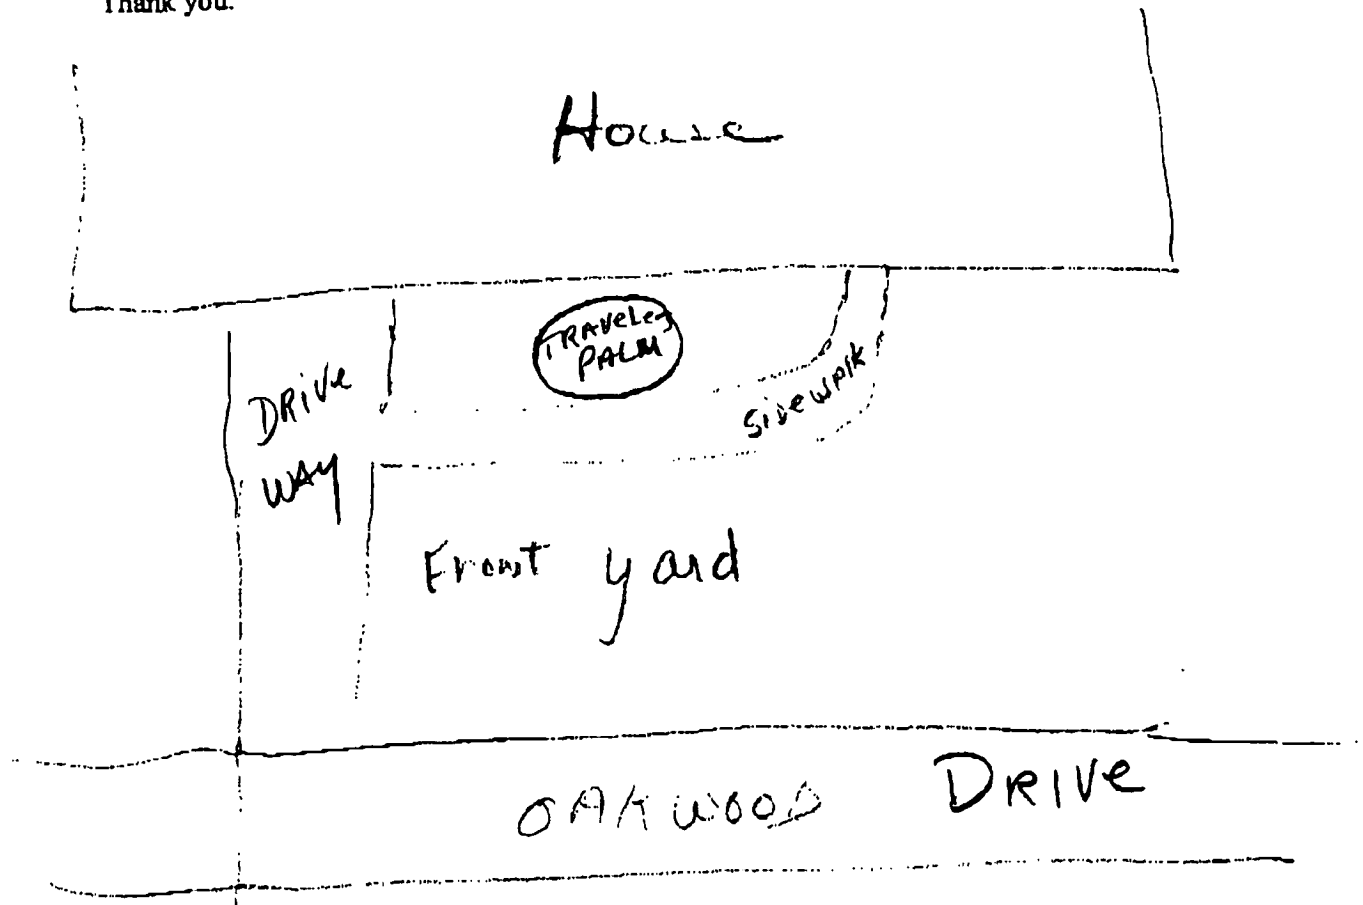 Thank you.
House
TRAVELES
PALM
DRIVE
WAY
SIDEWALK
Front yard
OAKWOOD DRIVE